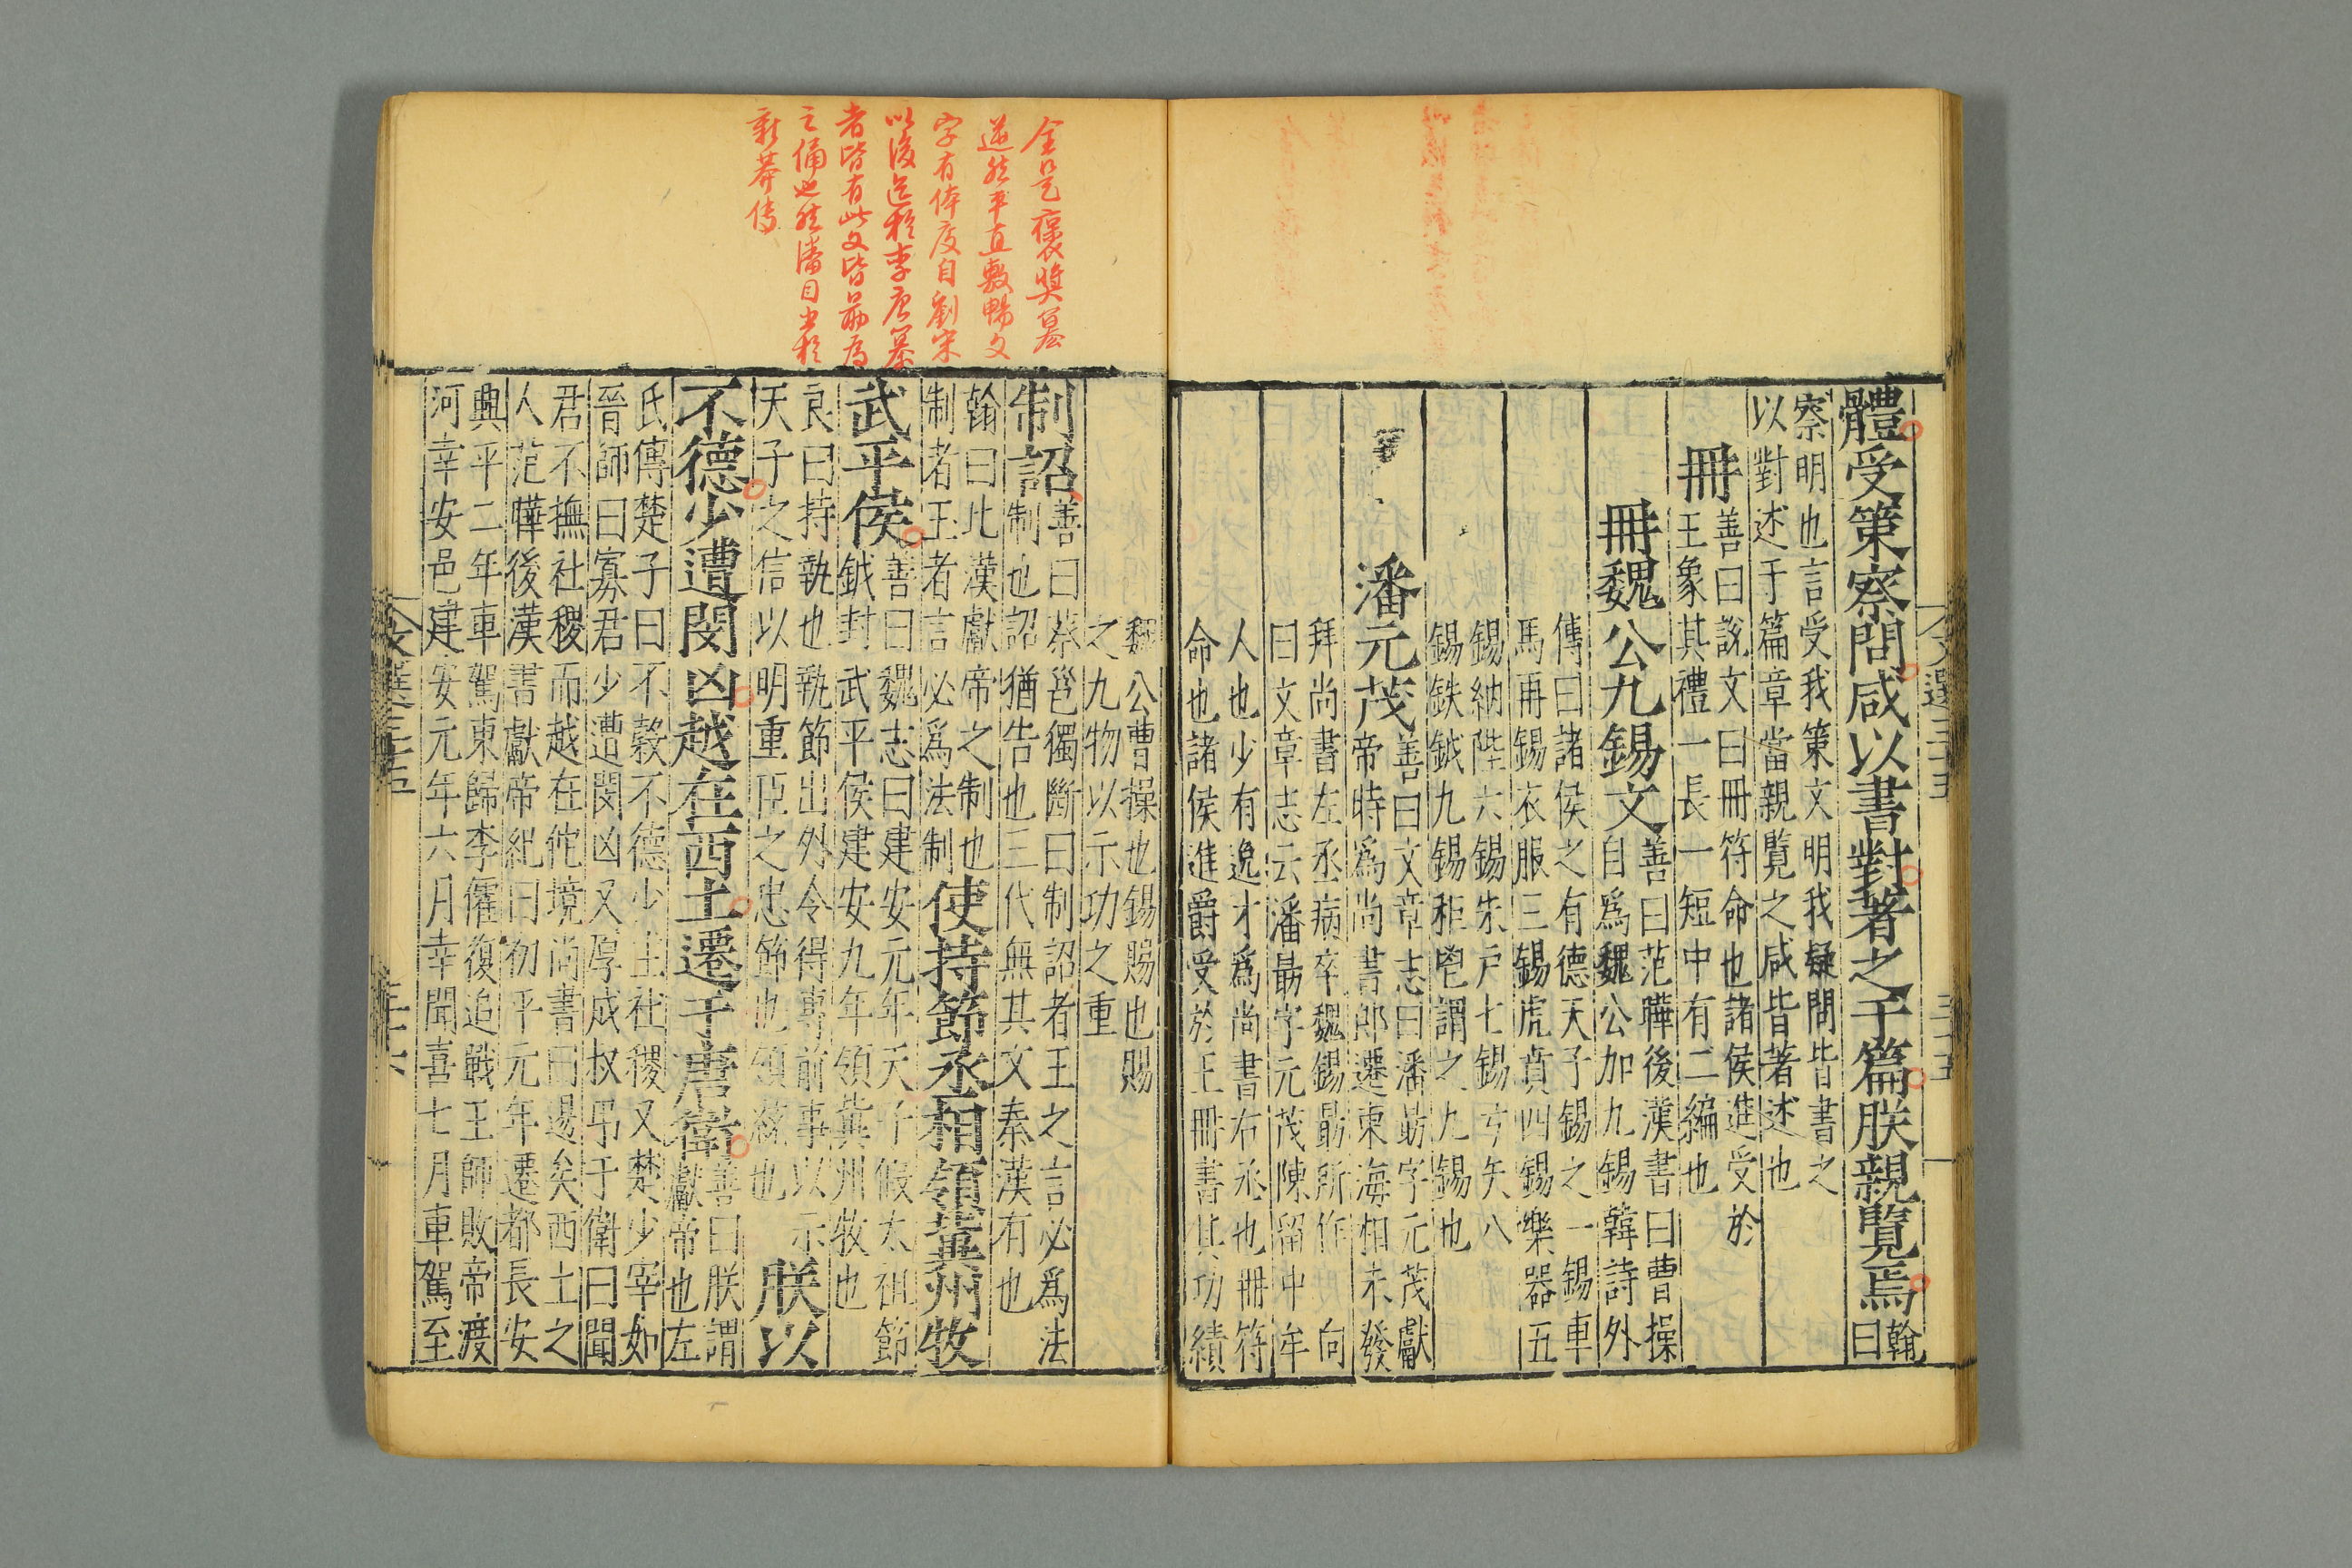 體受策察問咸以書對著之于篇朕親覽焉翰曰
察明也言受我策文明我疑問皆書之
以對述于篇章當親覽之咸皆著述也
冊善曰說文曰冊符命也諸侯進受於
王象其禮一長一短中有二編也
冊魏公九錫文善曰范曄後漢書曰曹操
自爲魏公加九錫韓詩外
傳曰諸侯之有德天子錫之一錫車
馬再錫衣服三錫虎賁四錫樂器五
錫納陛六錫朱戶七錫弓矢八
錫鈇鉞九錫秬鬯謂之九錫也
潘元茂善曰文章志曰潘勗字元茂獻
帝時爲尚書郎遷東海相未發
拜尚書左丞病卒魏錫勗所作 向
曰文章志云潘勗字元茂陳留中牟
人也少有逸才爲尚書右丞也冊符
命也諸侯進爵受於王冊書其功績
魏公曹操也錫賜也賜
之九物以示功之重
制詔善曰蔡邕獨斷曰制詔者王之言必爲法
制也詔猶告也三代無其文秦漢有也
翰曰此漢獻帝之制也
制者王者言必爲法制使持節丞相領冀州牧
武平侯善曰魏志曰建安元年天子假太祖節
鉞封武平侯建安九年領冀州牧也
良曰持執也執節出外令得專前事以示
天子之信以明重臣之忠節也領統也朕以
不德少遭閔凶越在西土遷于唐衛善曰朕謂
獻帝也左
氏傳楚子曰不穀不德少主社稷又楚少宰如
晉師曰寡君少遭閔凶又厚成叔弔于衛曰聞
君不撫社稷而越在佗境尚書曰逷矣西土之
人范曄後漢書獻帝紀曰初平元年遷都長安
興平二年車駕東歸李傕復追戰王師敗帝渡
河幸安邑建安元年六月幸聞喜七月車駕至
文選三十五
三十六
文選三十五
三十五
全是褒奬篡
逆然平直敷暢文
字有体度自劉宋
以後迄於李唐篡
者皆有此文皆前爲
之俑也然濤目出於
新莽傳